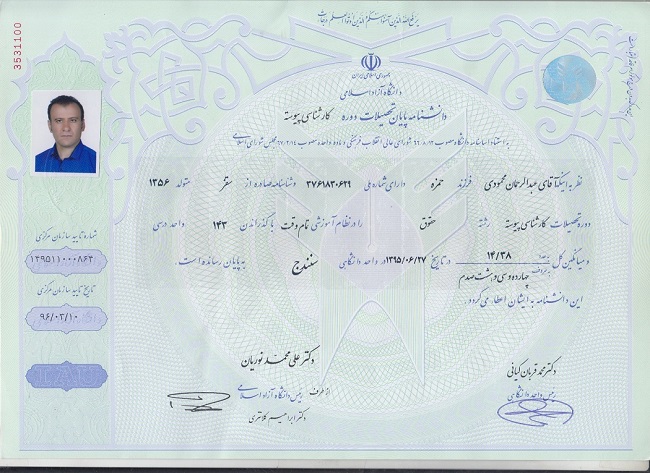 یرفع الله الذین آمنوا منکم والذین اوتوا العلم درجات
3531100
جمهوری اسلامی ایران
دانشگاه آزاد اسلامی
دانشنامه پایان تحصیلات دوره کارشناسی پیوسته
نظر به اینکه آقای عبدالرحمان محمودی فرزند حمزه دارای شماره ملی ۳۷۶۱۸۳۰۶۲۹ و شناسنامه صادره از سقز متولد ۱۳۵۶
دوره تحصیلات کارشناسی پیوسته رشته حقوق را در نظام آموزشی تمام وقت با گذراندن ۱۴۳ واحد درسی
و میانگین کل به عدد ۱۴/۳۸ در تاریخ ۱۳۹۵/۰۶/۲۷ در واحد دانشگاهی سنندج به پایان رسانده است.
به حروف چهارده و سی و هشت صدم
این دانشنامه به ایشان اعطا می گردد.
شماره تایید سازمان مرکزی
۱۳۹۵۱۱۰۰۰۸۶۳
تاریخ تایید سازمان مرکزی
۹۶/۰۳/۱۰
IAU
دکتر محمد قربان کیانی
رئیس واحد دانشگاهی
دکتر علی محمد نوریان
رئیس دانشگاه آزاد اسلامی
از طرف
دکتر ابراهیم کلانتری